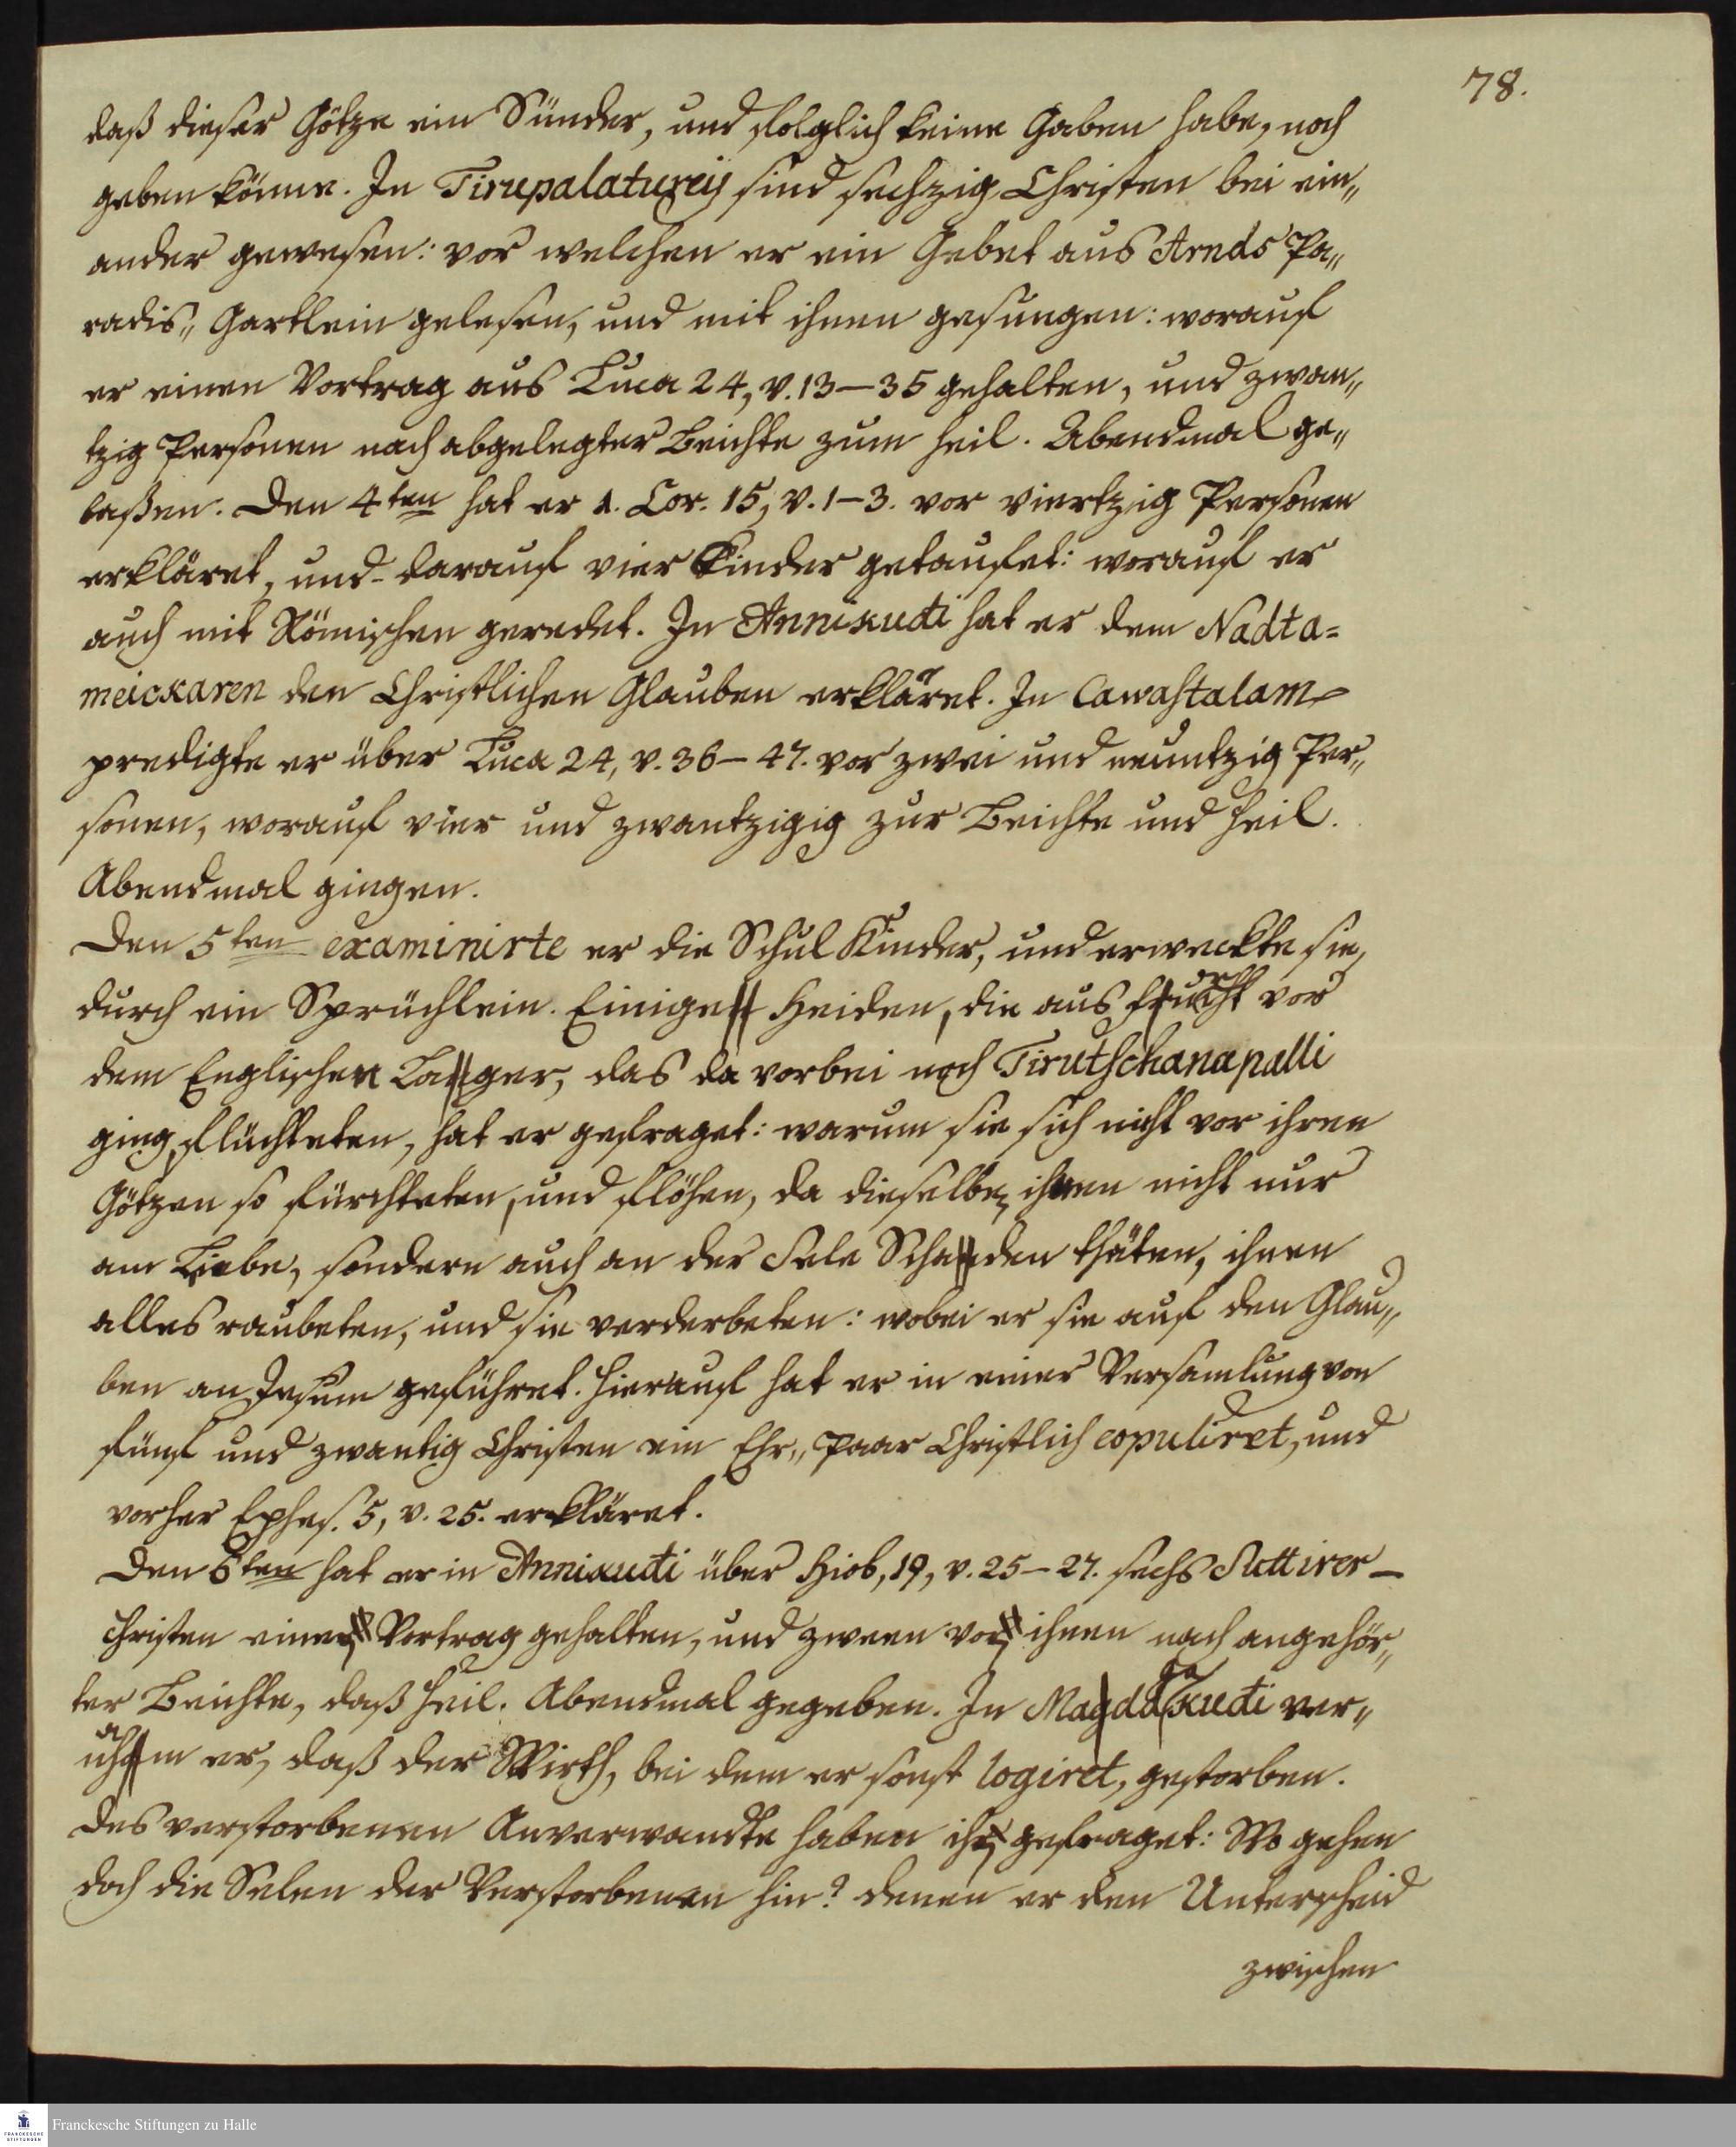 78.
daß dieser Götze ein Sünder, und folglich keine Gaben habe, noch
geben könne. In Tirupalatureij sind sechzig Christen bei ein„
ander gewesen: vor welchen er ein Gebet aus Arnds Pa„
radis„ Gartlein gelesen, und mit ihnen gesungen: worauf
er einen Vortrag aus Luca 24, v. 13–35 gehalten, und zwan„
tzig Personen nach abgelegter Beichte zum heil. Abendmal ge„
laßen. Den 4ten hat er 1. Cor. 15, v. 1–3. vor viertzig Personen
erkläret, und darauf vier Kinder getaufet: worauf er
auch mit Römischen geredet. In Annikudi hat er dem Nadta=
meickaren den Christlichen Glauben erkläret. In Cawastalam
predigte er über Luca 24, v. 36–47. vor zwei und neuntzig Per„
sonen, worauf vier und zwantzigig zur Beichte und heil.
Abendmal gingen.
Den 5ten examinirte er die Schul Kinder, und erweckte sie,
durch ein Sprüchlein. Einige Heiden, die aus Furcht vor
dem Englischen Lager, das da vorbei nach Tirutschanapalli
ging, flüchteten, hat er gefraget: warum sie sich nicht vor ihren
Götzen so fürchteten, und flöhen, da dieselben ihnen nicht nur
am Liebe, sondern auch an der Sele Schaden thäten, ihnen
alles raubeten, und sie verderbeten: wobei er sie auf den Glau„
ben an Jesum geführet. Hierauf hat er in einer Versamlung von
fünf und zwantig Christen ein Ehe„ paar Christlich copuliret, und
vorher Ephes. 5, v. 25. erkläret.
Den 6ten hat er in Annikudi über Hiob, 19, v. 25–27. sechs Suttirer–
christen einen Vortrag gehalten, und zween von ihnen nach angehör„
ter Beichte, daß heil. Abendmal gegeben. In kudi ver„
nahm er, daß der Wirth, bei dem er sonst logiret, gestorben.
Des verstorbenen Anverwandte haben ihn gefraget: Wo gehen
doch die Selen der Verstorbenen hin? denen er den Unterscheid
zwischen
Franckesche Stiftungen zu Halle
FRANCKESCHE
STIFTUNGEN